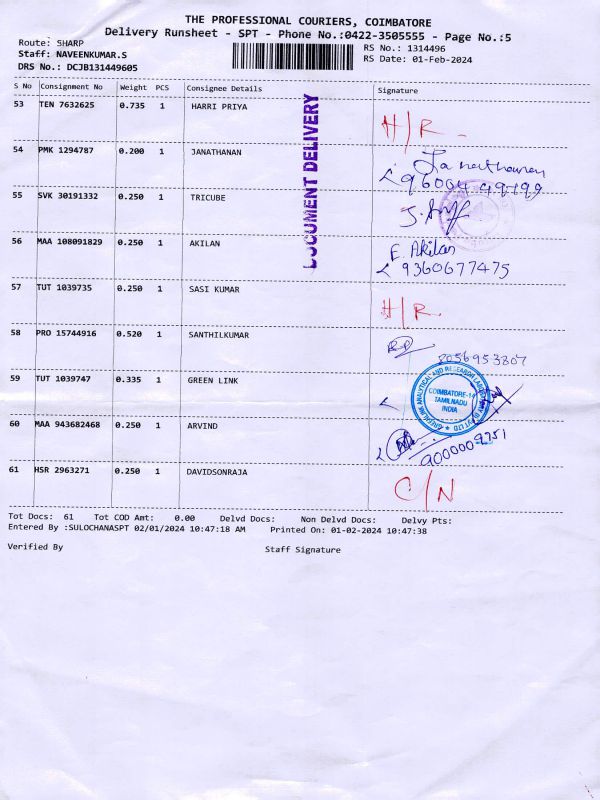 THE PROFESSIONAL COURIERS, COIMBATORE
Delivery Runsheet - SPT - Phone No.:0422-3505555 - Page No.:5
Route: SHARP
Staff: NAVEENKUMAR.S
DRS No.: DCJB131449605
RS No.: 1314496
RS Date: 01-Feb-2024
S No Consignment No Weight PCS Consignee Details Signature
53 TEN 7632625 0.735 1 HARRI PRIYA H/R
54 PMK 1294787 0.200 1 JANATHANAN Janathanan
55 SVK 30191332 0.250 1 TRICUBE
56 MAA 108091829 0.250 1 AKILAN E. Akilan
9360677475
57 TUT 1039735 0.250 1 SASI KUMAR H/R.
58 PRO 15744916 0.520 1 SANTHILKUMAR
8056953807
59 TUT 1039747 0.335 1 GREEN LINK
COIMBATORE-14
TAMILNADU
INDIA
60 MAA 943682468 0.250 1 ARVIND
61 HSR 2963271 0.250 1 DAVIDSONRAJA C/N
DOCUMENT DELIVERY
Tot Docs: 61 Tot COD Amt: 0.00 Delvd Docs: Non Delvd Docs: Delvy Pts:
Entered By :SULOCHANASPT 02/01/2024 10:47:18 AM Printed On: 01-02-2024 10:47:38
Verified By Staff Signature